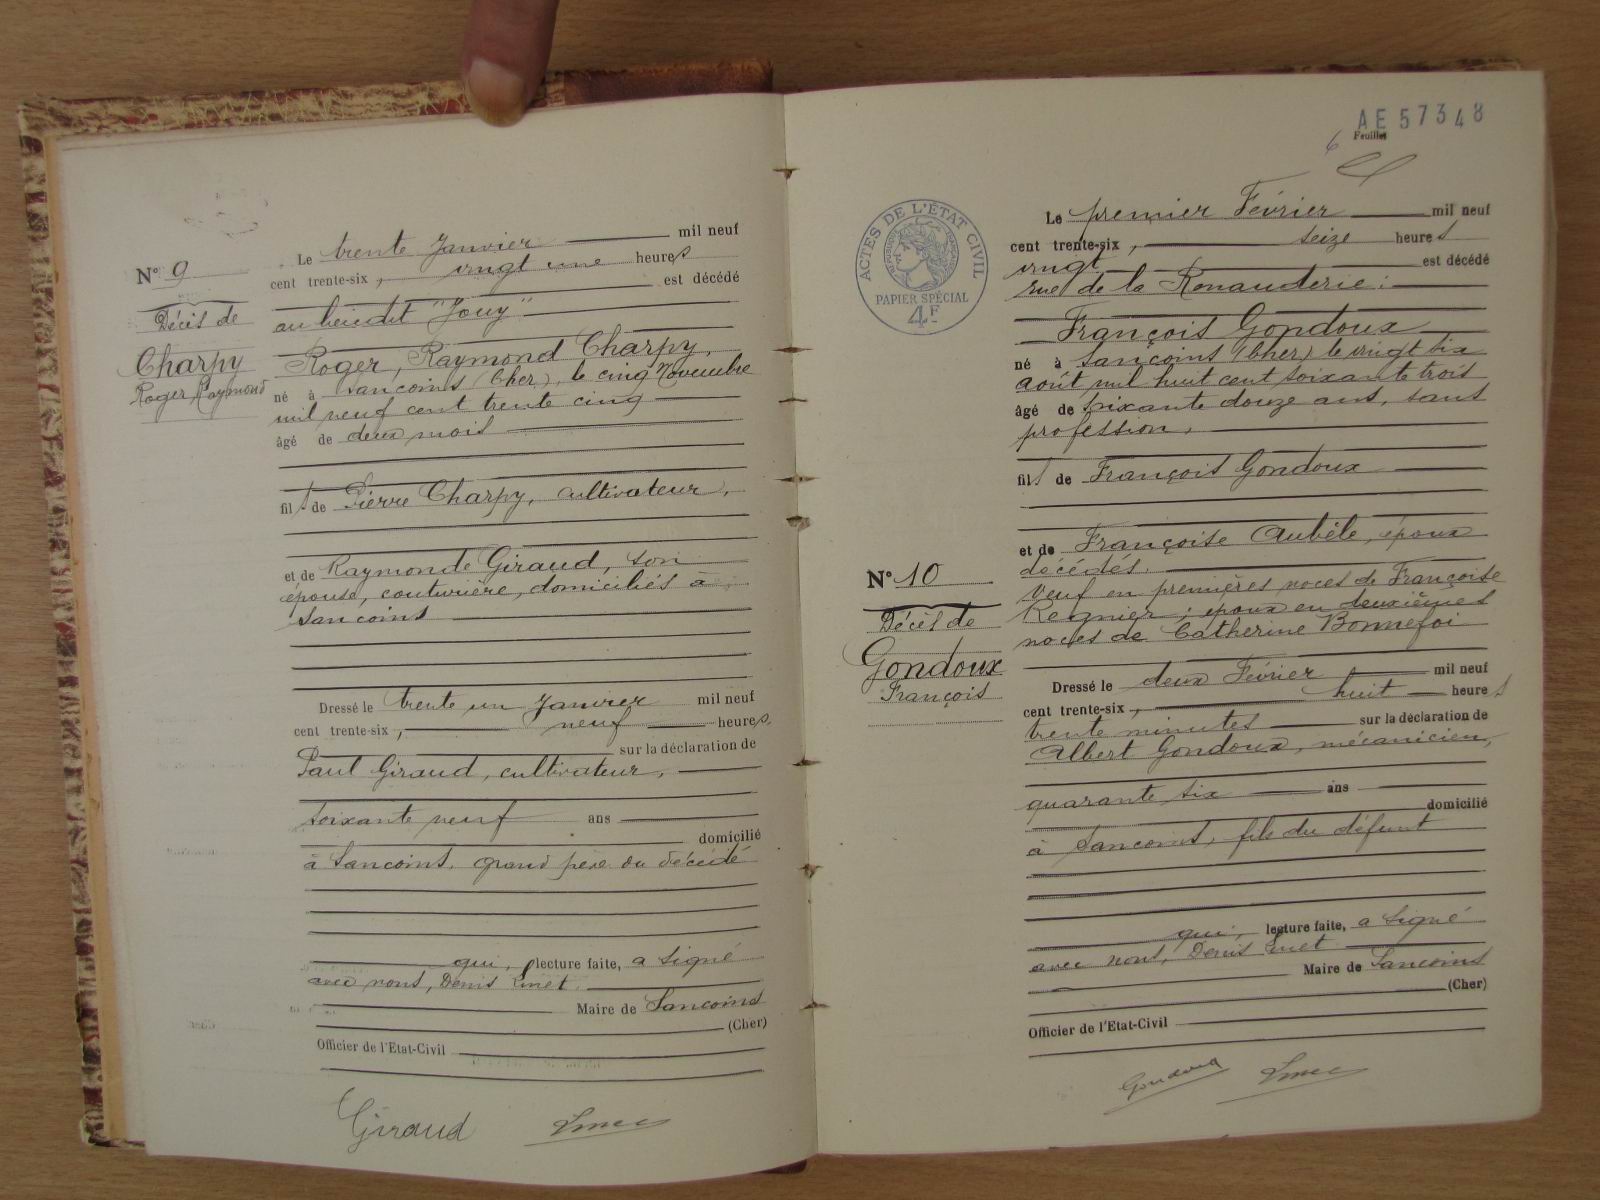 N° 9
Décès de
Charpy
Roger Raymond
Le trente Janvier mil neuf
cent trente-six, vingt une heures
est décédé
au lieudit "Jouy"
Roger, Raymond Charpy,
né à Sancoins (Cher), le cinq Novembre
mil neuf cent trente cinq
âgé de deux mois
fils de Pierre Charpy, cultivateur,
et de Raymonde Giraud, son
épouse, couturière, domiciliés à
Sancoins
Dressé le trente un Janvier mil neuf
cent trente-six, neuf heures
sur la déclaration de
Paul Giraud, cultivateur,
soixante neuf ans
domicilié
à Sancoins, grand père du décédé
qui, lecture faite, a signé
avec nous, Denis
Maire de Sancoins
(Cher)
Officier de l'Etat-Civil
Giraud
AE 57348
Feuillet
6
ACTES DE L'ÉTAT CIVIL
RÉPUBLIQUE FRANÇAISE
PAPIER SPÉCIAL
4F
N° 10
Décès de
Gondoux
François
Le premier Février mil neuf
cent trente-six, seize heures
vingt est décédé
rue de la Renauderie :
François Gondoux
né à Sancoins (Cher) le vingt six
août mil huit cent soixante trois
âgé de soixante douze ans, sans
profession,
fils de François Gondoux
et de Françoise Aubèle, époux
décédés.
Veuf en premières noces de Françoise
Regnier ; époux en deuxièmes
noces de Catherine Bonnefoi
Dressé le deux Février mil neuf
cent trente-six, huit heures
trente minutes sur la déclaration de
Albert Gondoux, mécanicien,
quarante six ans
domicilié
à Sancoins, fils du défunt
qui, lecture faite, a signé
avec nous, Denis
Maire de Sancoins
(Cher)
Officier de l'Etat-Civil
Gondoux